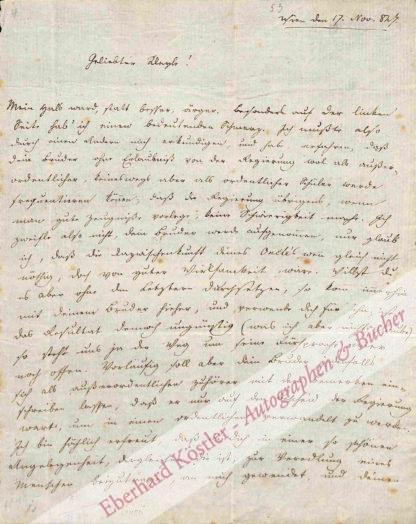 53
Wien den 17. Nov. 827.
Geliebter Kleyle!
Mein Hals ward, statt besser, ärger. besonders auf der linken
Seite hab' ich einen bedeutenden Schmerz. Ich mußte also
durch einen Andern mich erkundigen, und hab erfahren, daß
dein Bruder ohne Erlaubniß von der Regierung wol als außer-
ordentlicher, keineswegs aber als ordentlicher Schüler werde
frequentiren können, daß die Regierung übrigens, wenn
man gute Zeugnisse vorlege, keine Schwierigkeit mache. Ich
zweifle also nicht, dein Bruder werde aufgenommen; nur glaub
ich, daß die Dazwischenkunft deines Onkels wenn gleich nicht
nöthig, doch von guter Wirksamkeit wäre. Willst du
es aber ohne den Letztern durchsetzen, so kom immerhin
mit deinem Bruder hieher, und verwende dich für ihn;
das Resultat dennoch ungünstig (was ich aber nicht
so steht uns ja der Weg um seine
noch offen. Vorläufig soll aber dein Bruder
sich als außerordentlichen Zuhörer mit dem Bemerken ein-
schreiben lassen, daß er nur auch den der Regierung
wart, um in einen ordentlichen verwandelt zu werden.
Ich bin höchlich erfreut, daß du dich in einer so schönen
Angelegenheit, dergleichen die ist, zur Veredlung eines
Menschen an mich gewendet, und deinen
Eberhard Köstler - Autographen & Bücher